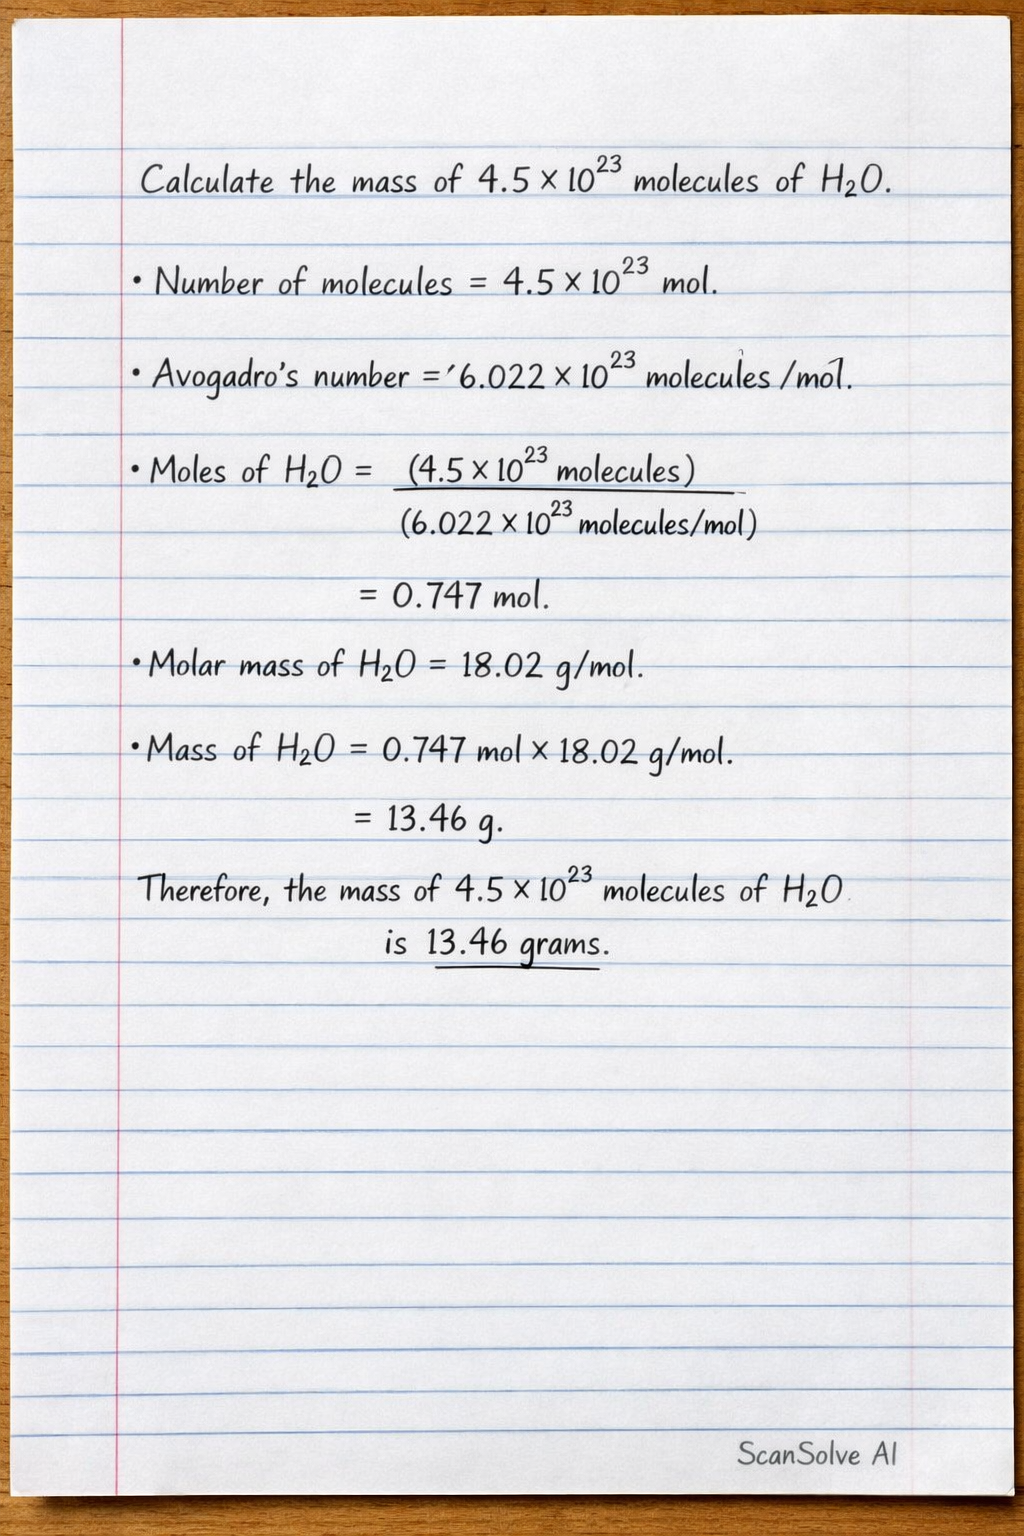 Calculate the mass of 4.5 × 10²³ molecules of H₂O.
• Number of molecules = 4.5 × 10²³ mol.
• Avogadro's number = 6.022 × 10²³ molecules /mol.
• Moles of H₂O = (4.5 × 10²³ molecules)
(6.022 × 10²³ molecules/mol)
= 0.747 mol.
• Molar mass of H₂O = 18.02 g/mol.
• Mass of H₂O = 0.747 mol × 18.02 g/mol.
= 13.46 g.
Therefore, the mass of 4.5 × 10²³ molecules of H₂O
is 13.46 grams.
ScanSolve AI